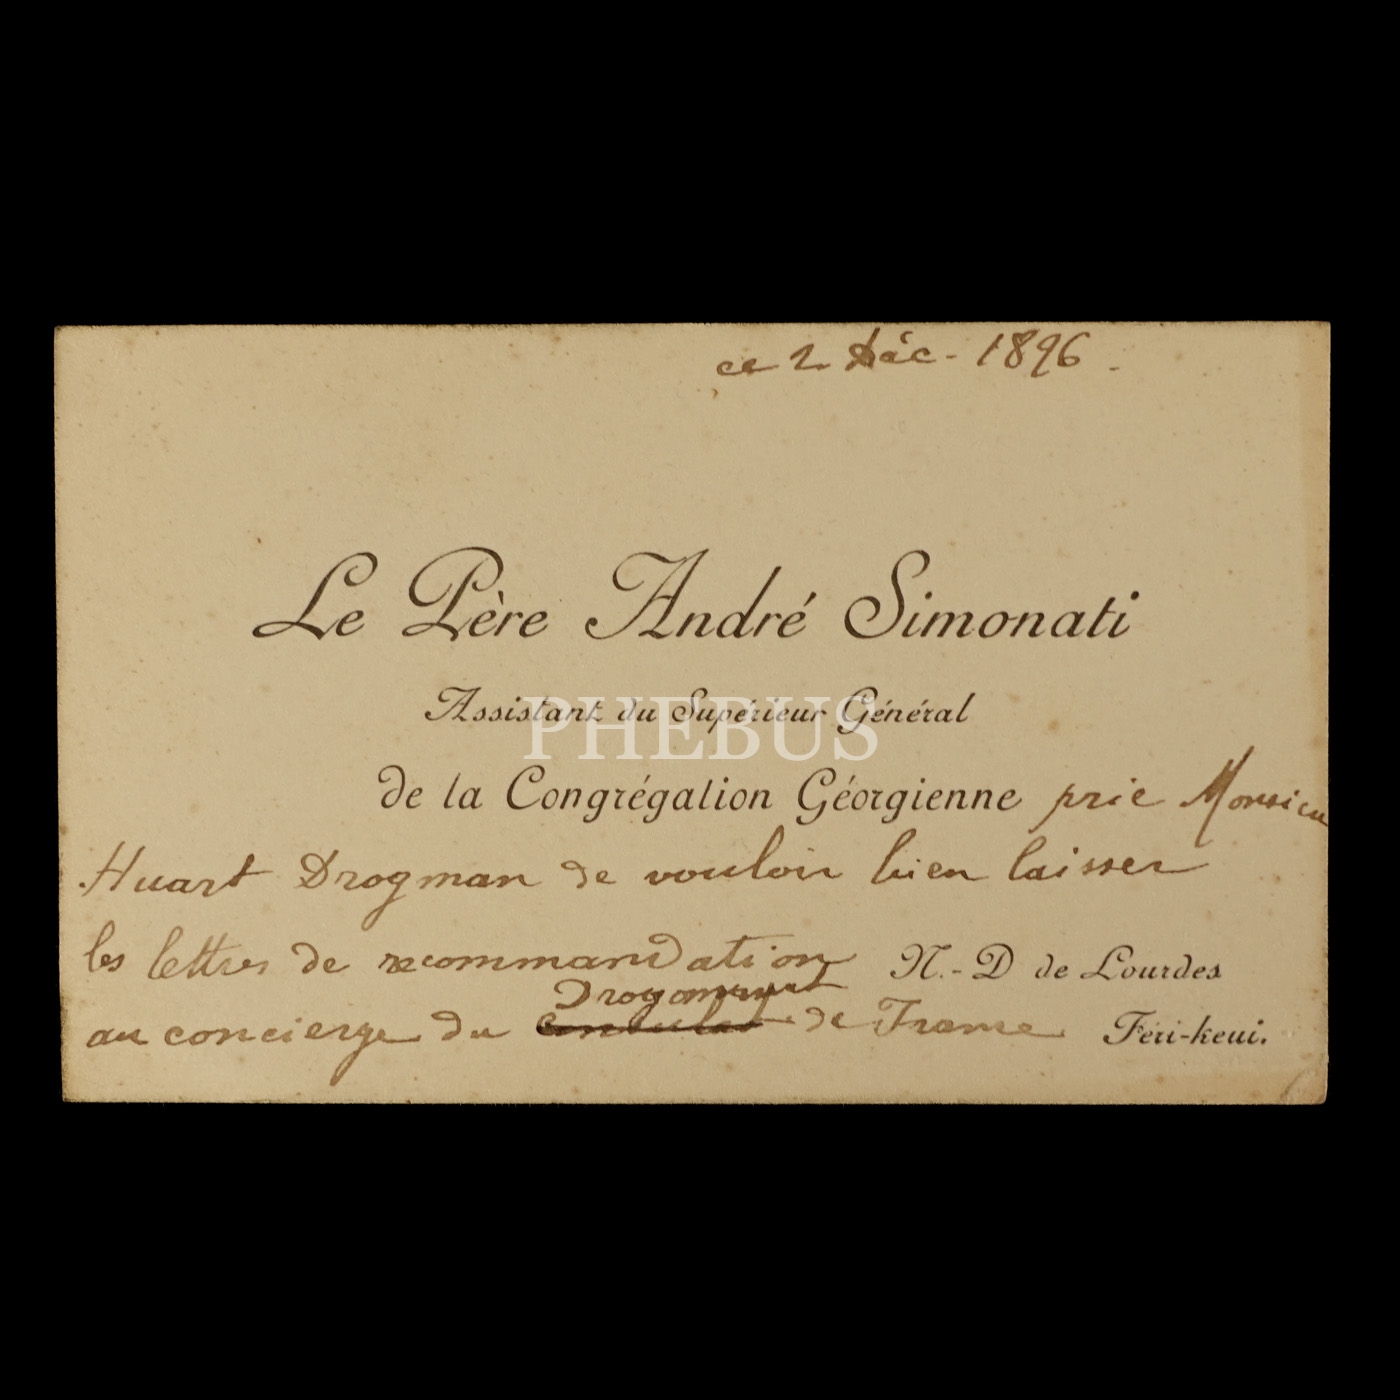 ce 2 Déc. 1896.
Le Père André Simonati
Assistant du Supérieur Général
PHEBUS
de la Congrégation Géorgienne prie Monsieur
Huart Drogman de vouloir bien laisser
les lettres de recommandation
N.-D de Lourdes
Drogmanat
au concierge du consulat de France
Féri-keui.